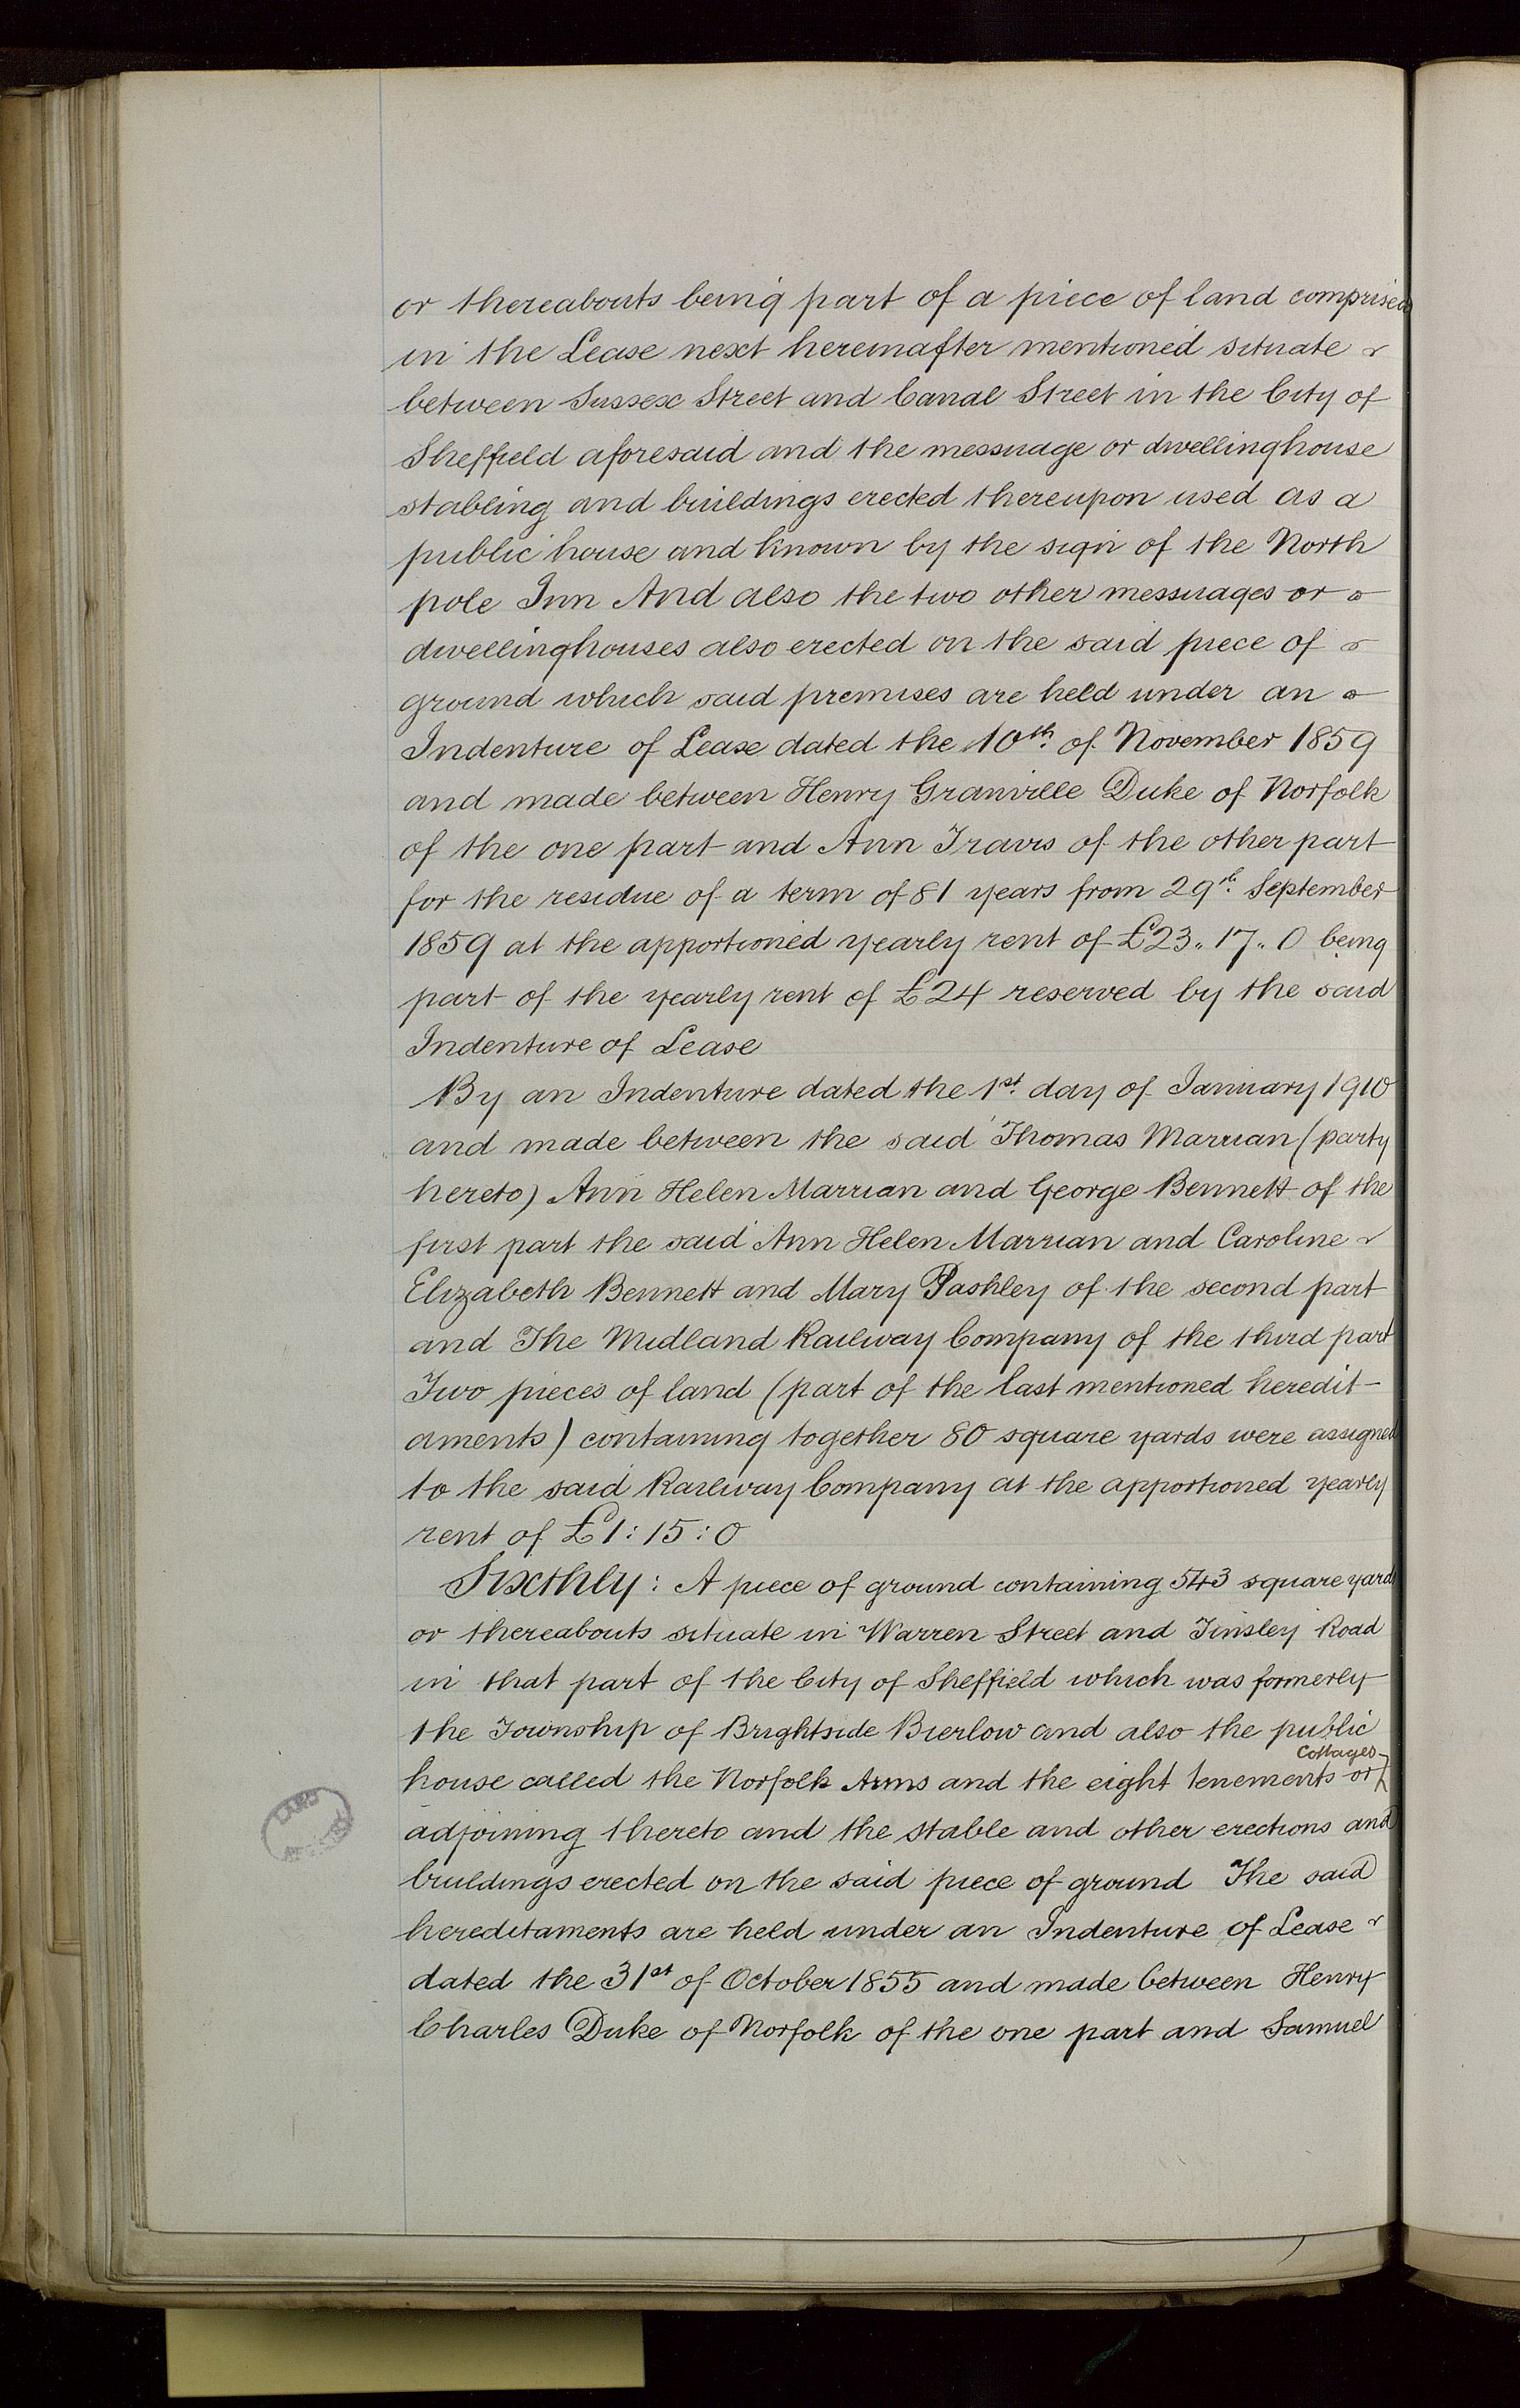 or thereabouts being part of a piece of land comprised
in the Lease next hereinafter mentioned situate
between Sussex Street and Canal Street in the City of
Sheffield aforesaid and the messuage or dwellinghouse
stabling and buildings erected thereupon used as a
public house and known by the sign of the North
pole Inn And also the two other messuages or
dwellinghouses also erected on the said piece of
ground which said premises are held under an
Indenture of Lease dated the 10th. of November 1859
and made between Henry Granville Duke of Norfolk
of the one part and Ann Travis of the other part
for the residue of a term of 81 years from 29th. September
1859 at the apportioned yearly rent of £23.. 17.. 0 being
part of the yearly rent of £24 reserved by the said
Indenture of Lease
By an Indenture dated the 1st. day of January 1910
and made between the said Thomas Marrian (party
hereto) Ann Helen Marrian and George Bennett of the
first part the said Ann Helen Marrian and Caroline
Elizabeth Bennett and Mary Pashley of the second part
and The Midland Railway Company of the third part
Two pieces of land (part of the last mentioned heredit-
aments) containing together 80 square yards were assigned
to the said Railway Company at the apportioned yearly
rent of £1 : 15 : 0
Sixthly : A piece of ground containing 543 square yards
or thereabouts situate in Warren Street and Tinsley Road
in that part of the City of Sheffield which was formerly
the Township of Brightside Bierlow and also the public
Cottages
house called the Norfolk Arms and the eight tenements or
adjoining thereto and the stable and other erections and
LAND
buildings erected on the said piece of ground The said
hereditaments are held under an Indenture of Lease
dated the 31st of October 1855 and made between Henry
Charles Duke of Norfolk of the one part and Samuel